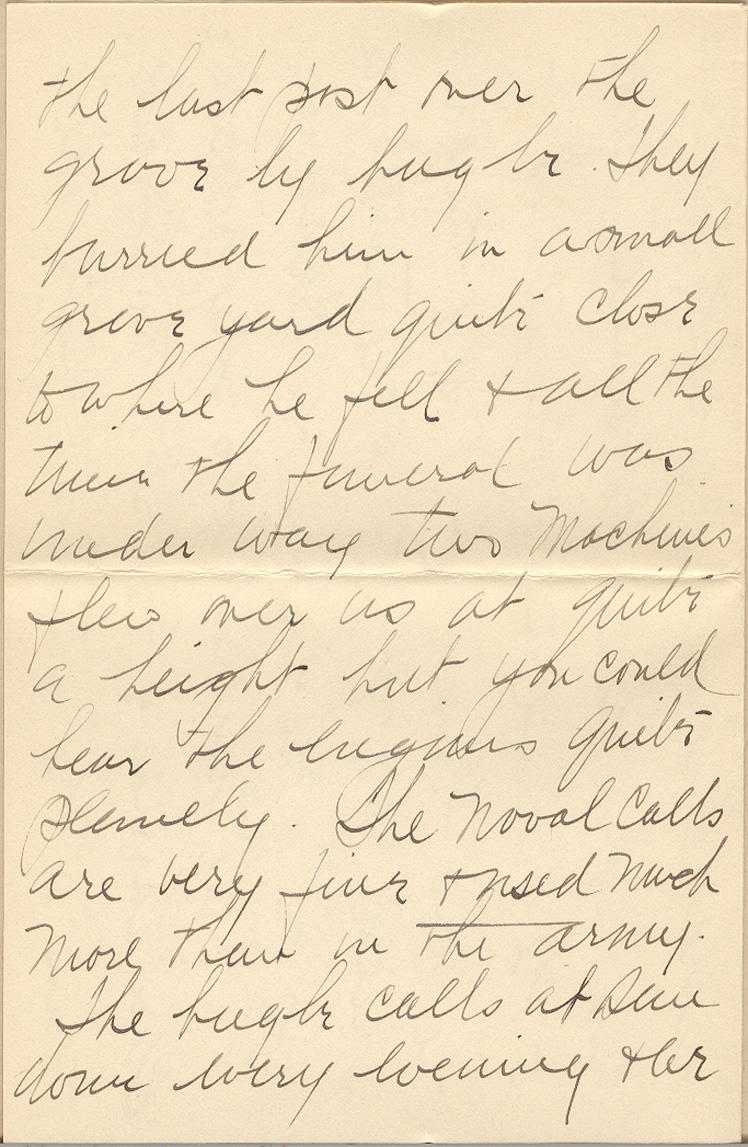 the last post over the
grave by bugle. They
burried him in a small
grave yard quite close
to where he fell & all the
time the funeral was
under way two Machines
flew over us at quite
a height but you could
hear the engines quite
plainely. The Naval Calls
are very fine & used much
more than in the army.
The bugle calls at Sun
down every evening & her